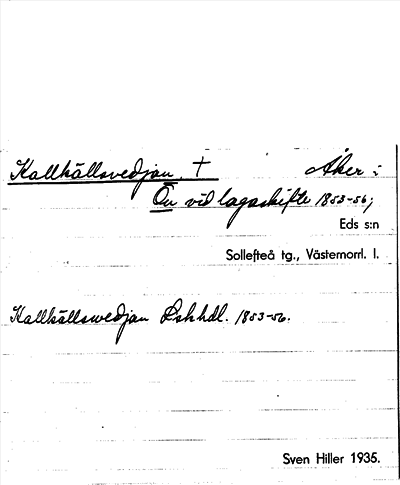 Kallkällsvedjan. † Åker :
Ön vid lagaskifte 1853-56;
Eds s:n
Sollefteå tg., Västernorrl. l.
Kallkällswedjan Lskhdl. 1853-56.
Sven Hiller 1935.